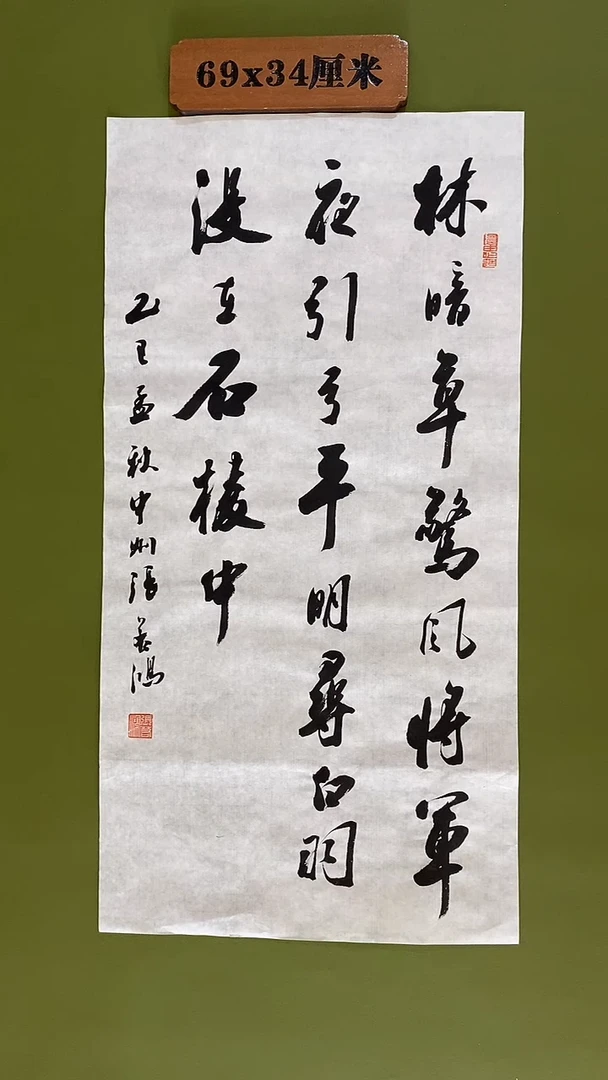 69x34厘米
林暗草驚风将軍
夜引弓平明尋白羽
没在石棱中
乙巳孟秋中州張益鴻